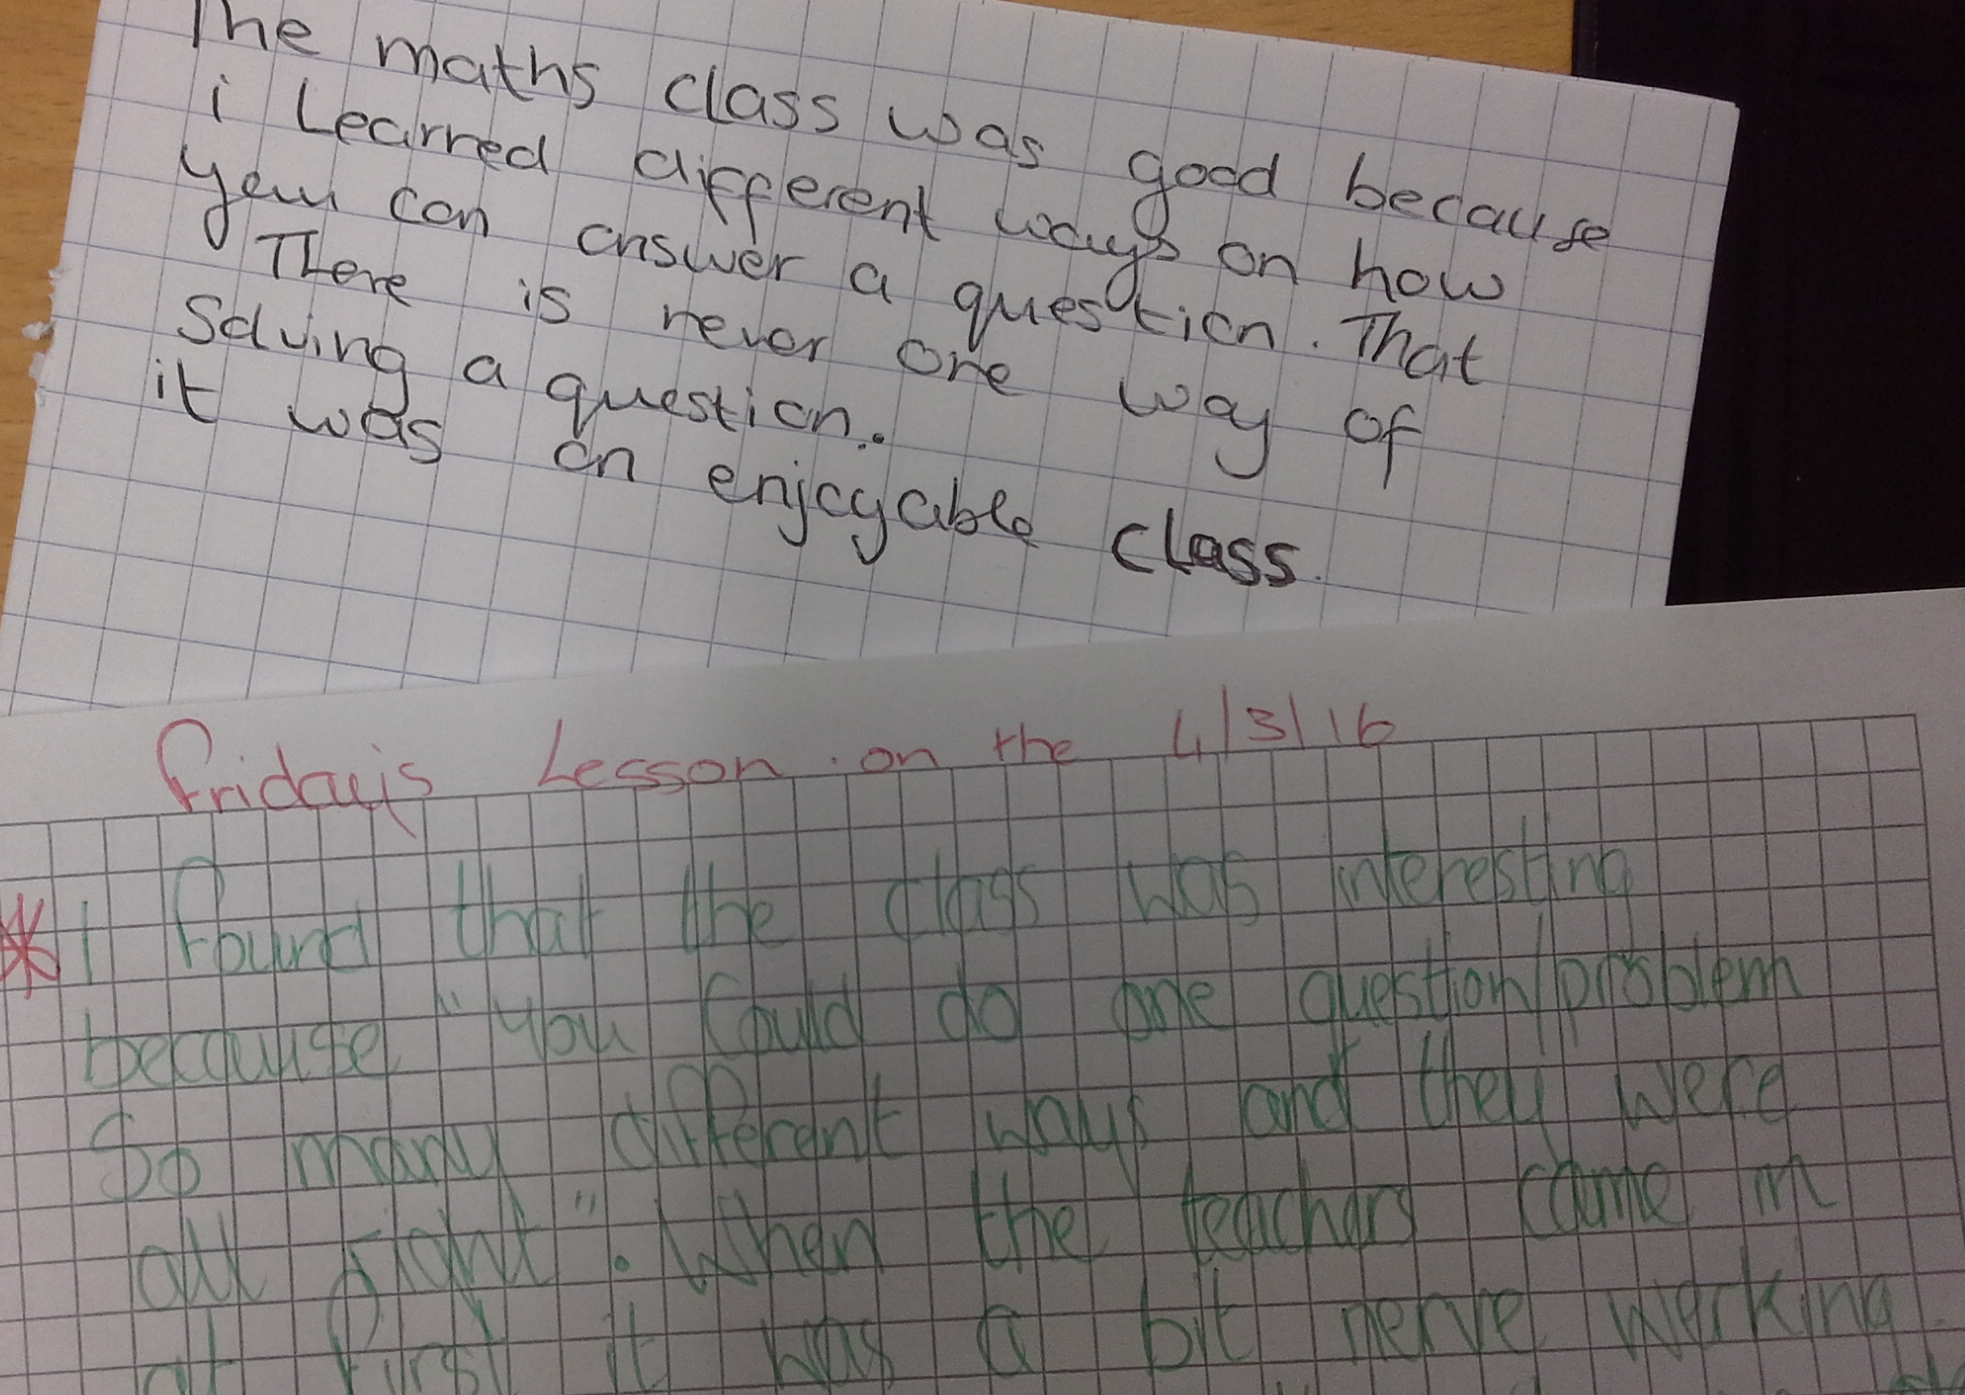 The maths class was good because
i Learned different ways on how
you can answer a question. That
There is never one way of
Solving a question.
it was an enjoyable class.
Friday's Lesson on the 4/3/16
* I found that the class was interesting
because "you could do one question/problem
So many different ways and they were
all right". When the teachers came in
at first it was a bit nerve werking